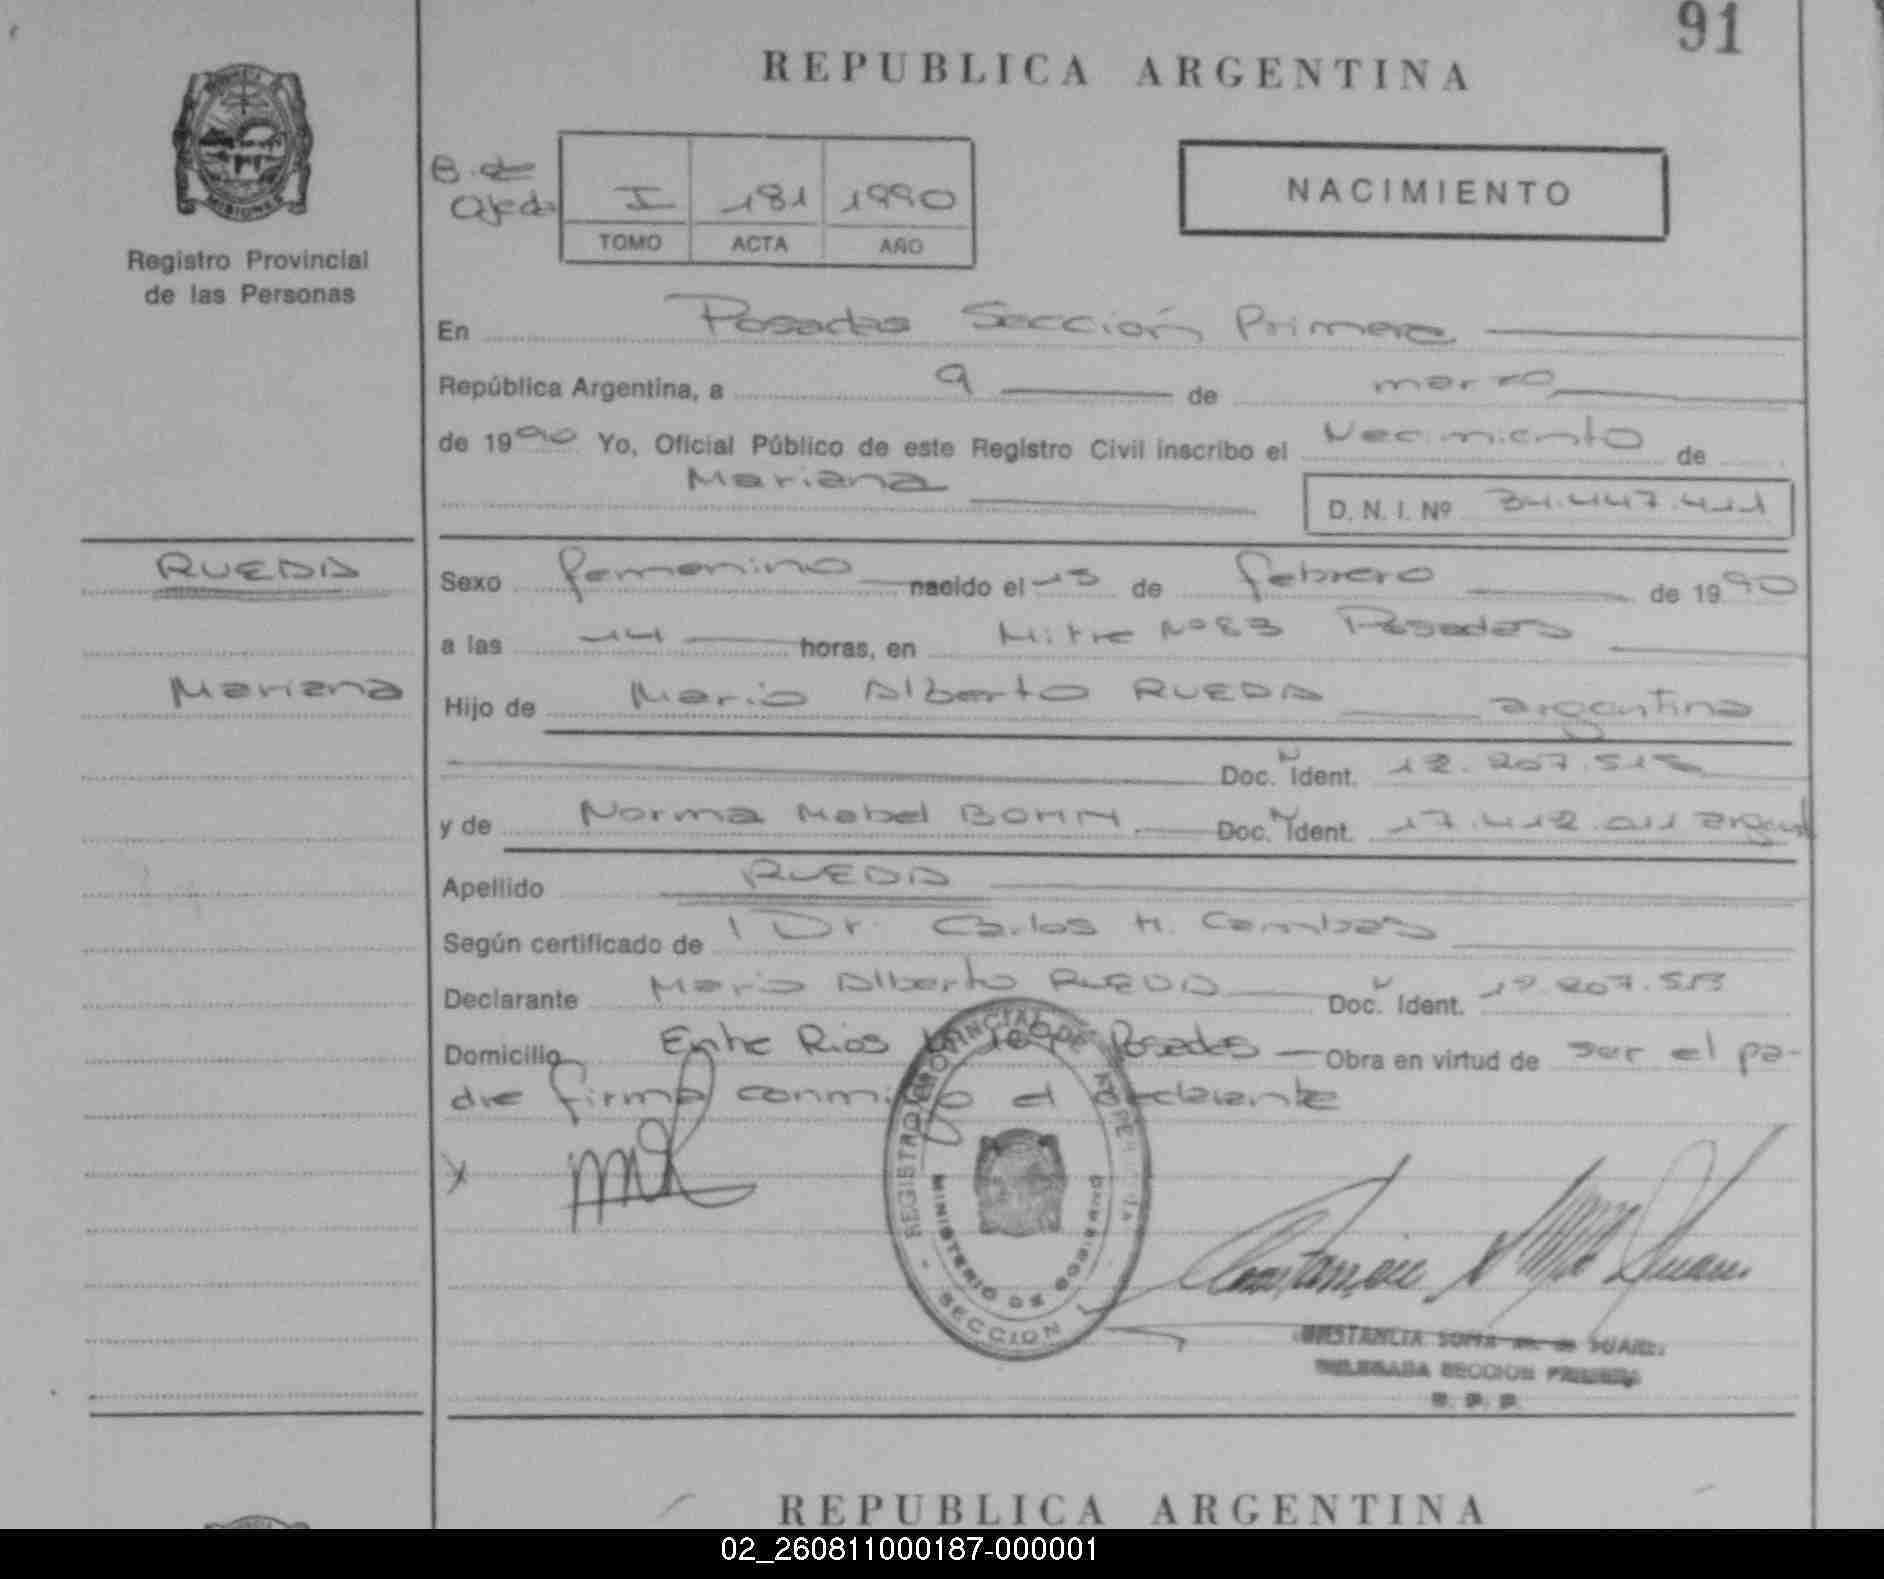 91
REPUBLICA ARGENTINA
MISIONES
Registro Provincial
de las Personas
B. de
Ojeda
I 181 1990
TOMO ACTA AÑO
NACIMIENTO
En Posadas Sección Primera
República Argentina, a 9 de marzo
de 1990 Yo, Oficial Público de este Registro Civil inscribo el Nacimiento de
Mariana
D. N. I. Nº 34.447.411
RUEDA
Sexo femenino nacido el 15 de febrero de 1990
a las 14 horas, en Mitre Nº 83 Posadas
Mariana
Hijo de Mario Alberto RUEDA argentina
Doc. Ident. 12.207.515
y de Norma Mabel BOHN Doc. Ident. 17.412.011 argent
Apellido RUEDA
Según certificado de Dr. Carlos H. Cambas
Declarante Mario Alberto RUEDA Doc. Ident.
Domicilio Entre Rios Posadas Obra en virtud de ser el pa-
dre firma conmigo el declarante
REGISTRO PROVINCIAL DE
MINISTERIO DE GOBIERNO
SECCION
CONSTANCIA SOFIA de SUAREZ
DELEGADA SECCION PRIMERA
R. P. P.
REPUBLICA ARGENTINA
02_260811000187-000001